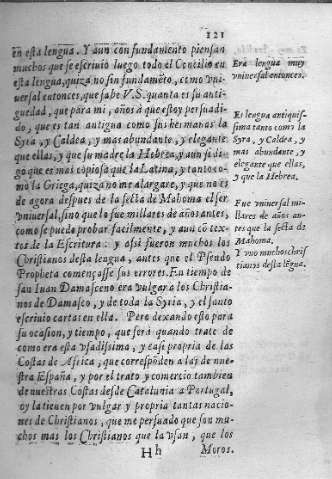 121
en esta lengua. Y aun con fundamento piensan
muchos que se escriuio luego todo el Concilio en
esta lengua, quiza no sin fundamẽto, como vni-
uersal entonces, que sabe V.S. quanta es su anti-
guedad, que para mi, años à que estoy persuadi-
do, que es tan antigua como sus hermanas la
Syra, y Caldea, y mas abundante, y elegante
que ellas, y que su madre la Hebrea, y aun si di-
go que es mas copiosa que la Latina, y tanto co-
mo la Griega, quiza no me alargare, y que no es
de agora despues de la secta de Mahoma el ser
vniuersal, sino que lo fue millares de años antes,
como se puede probar facilmente, y aun cõ tex-
tos de la Escritura: y assi fueron muchos los
Christianos desta lengua, antes que el Pseudo
Propheta començasse sus errores. En tiempo de
san Iuan Damasceno era vulgar a los Christia-
nos de Damasco, y de toda la Syria, y el santo
escriuio cartas en ella. Pero dexando esto para
su ocasion, y tiempo, que será quando trate de
como era esta vsadissima, y casi propria de las
Costas de Africa, que correspõden a las de nue-
stra España, y por el trato y comercio tambien
de nuestras Costas desde Catalunia a Portugal,
oy la tienen por vulgar y propria tantas nacio-
nes de Christianos, que me persuado que son mu-
chos mas los Christianos que la vsan, que los
Hh Moros.
Era lengua muy
vniuersal entonces.
Es lengua antiquis-
sima tanto como la
Syra, y Caldea, y
mas abundante, y
elegante que ellas,
y que la Hebrea.
Fue vniuersal mi-
llares de años an-
tes que la secta de
Mahoma.
Y vuo muchos chris-
tianos desta lẽgua.